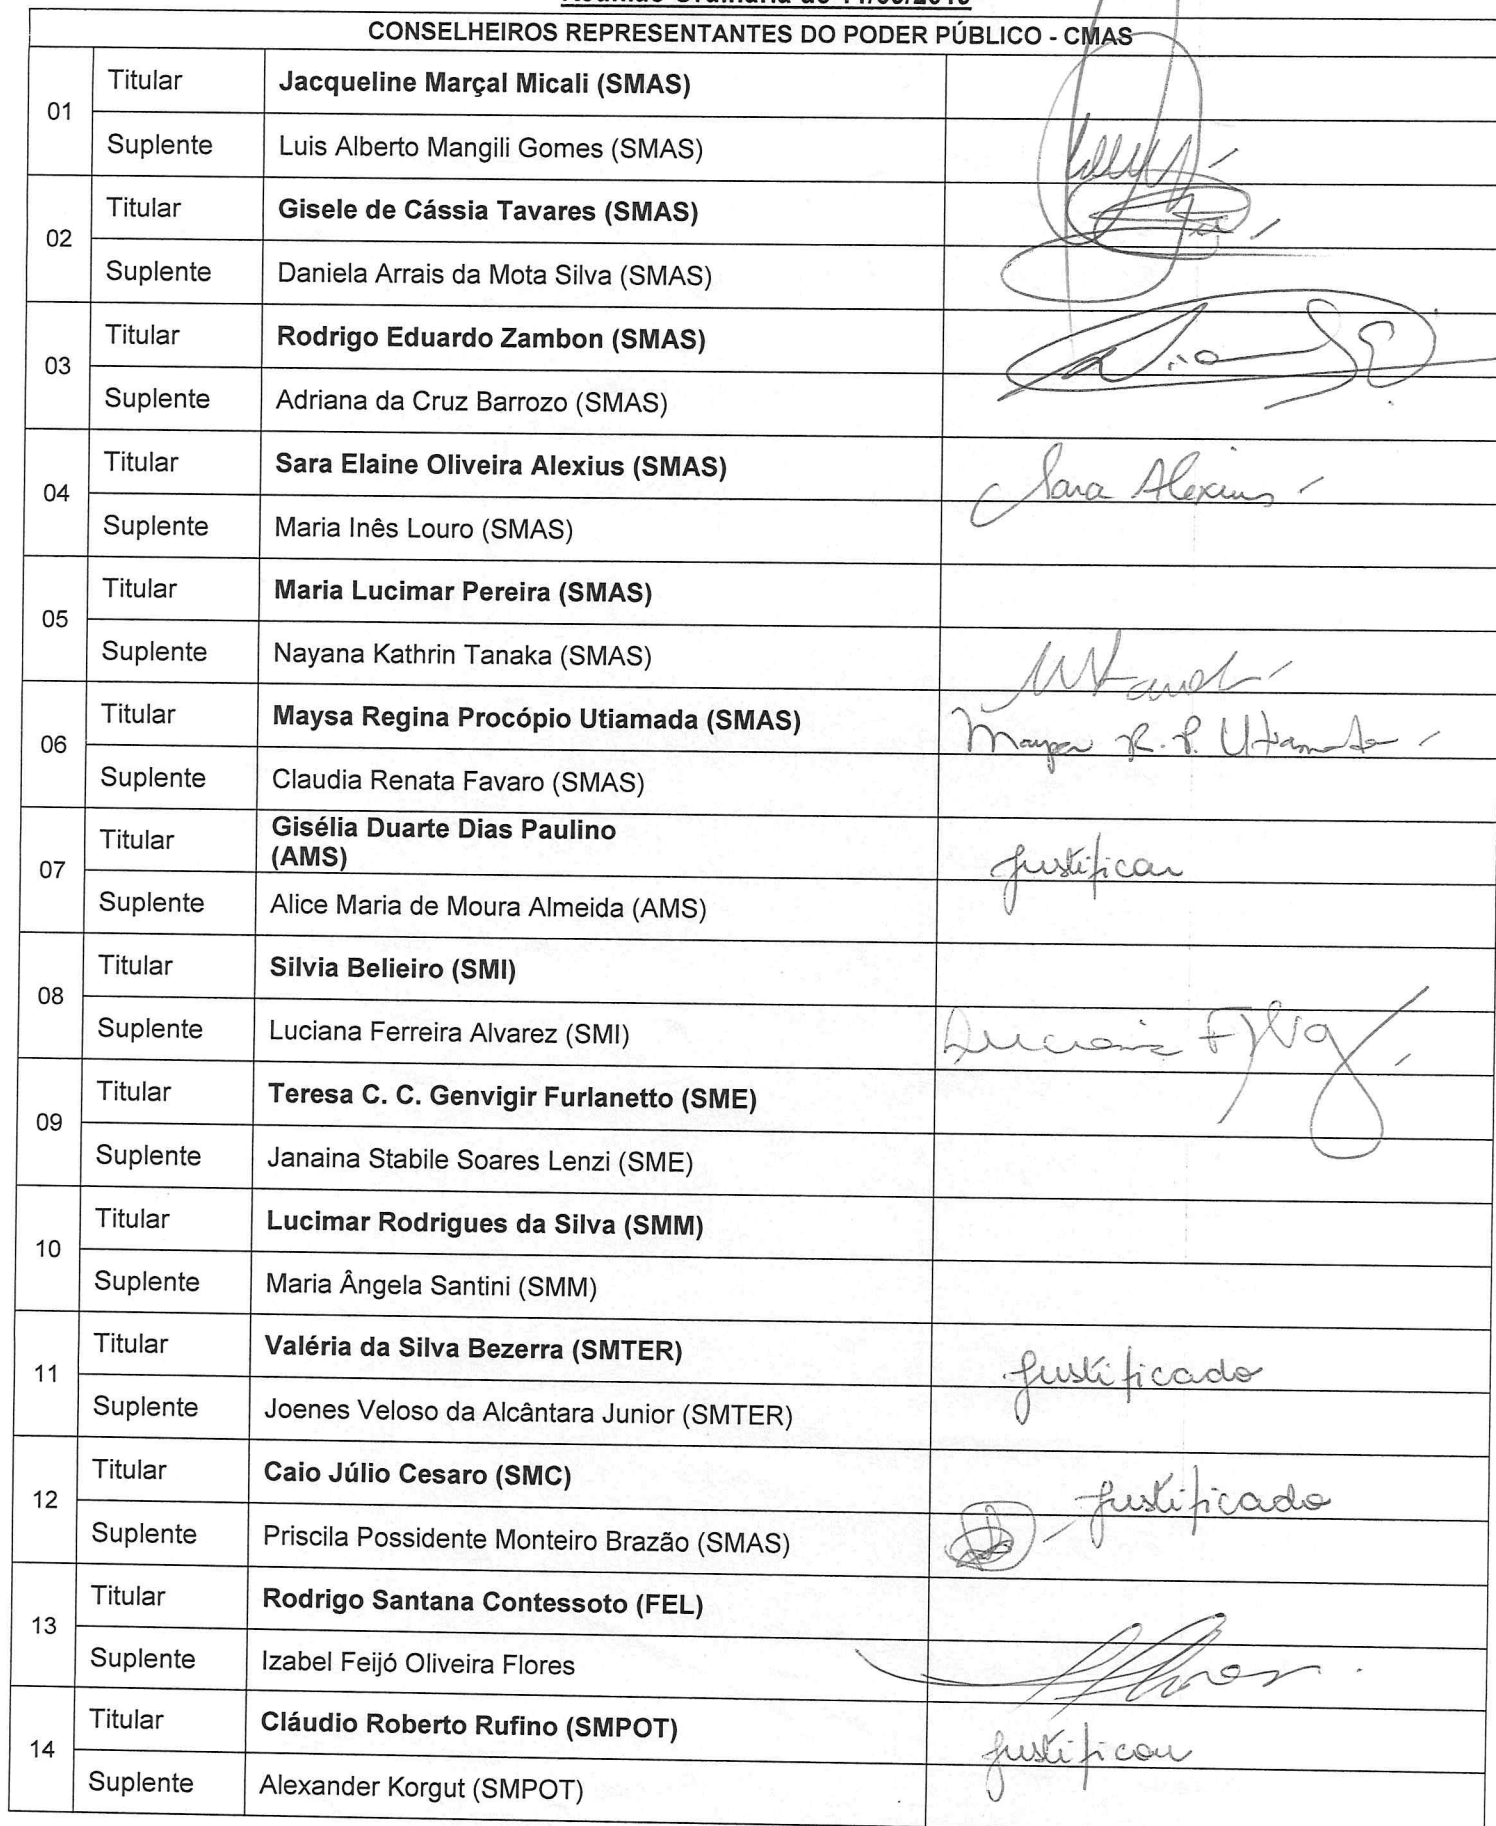 CONSELHEIROS REPRESENTANTES DO PODER PÚBLICO - CMAS
01
Titular Jacqueline Marçal Micali (SMAS)
Suplente Luis Alberto Mangili Gomes (SMAS)
02
Titular Gisele de Cássia Tavares (SMAS)
Suplente Daniela Arrais da Mota Silva (SMAS)
03
Titular Rodrigo Eduardo Zambon (SMAS)
Suplente Adriana da Cruz Barrozo (SMAS)
04
Titular Sara Elaine Oliveira Alexius (SMAS) Sara Alexius
Suplente Maria Inês Louro (SMAS)
05
Titular Maria Lucimar Pereira (SMAS)
Suplente Nayana Kathrin Tanaka (SMAS)
06
Titular Maysa Regina Procópio Utiamada (SMAS) Maysa R. P. Utiamada
Suplente Claudia Renata Favaro (SMAS)
07
Titular Gisélia Duarte Dias Paulino
(AMS) justificou
Suplente Alice Maria de Moura Almeida (AMS)
08
Titular Silvia Belieiro (SMI)
Suplente Luciana Ferreira Alvarez (SMI) Luciana
09
Titular Teresa C. C. Genvigir Furlanetto (SME)
Suplente Janaina Stabile Soares Lenzi (SME)
10
Titular Lucimar Rodrigues da Silva (SMM)
Suplente Maria Ângela Santini (SMM)
11
Titular Valéria da Silva Bezerra (SMTER) justificado
Suplente Joenes Veloso da Alcântara Junior (SMTER)
12
Titular Caio Júlio Cesaro (SMC) justificado
Suplente Priscila Possidente Monteiro Brazão (SMAS)
13
Titular Rodrigo Santana Contessoto (FEL)
Suplente Izabel Feijó Oliveira Flores
14
Titular Cláudio Roberto Rufino (SMPOT) justificou
Suplente Alexander Korgut (SMPOT)